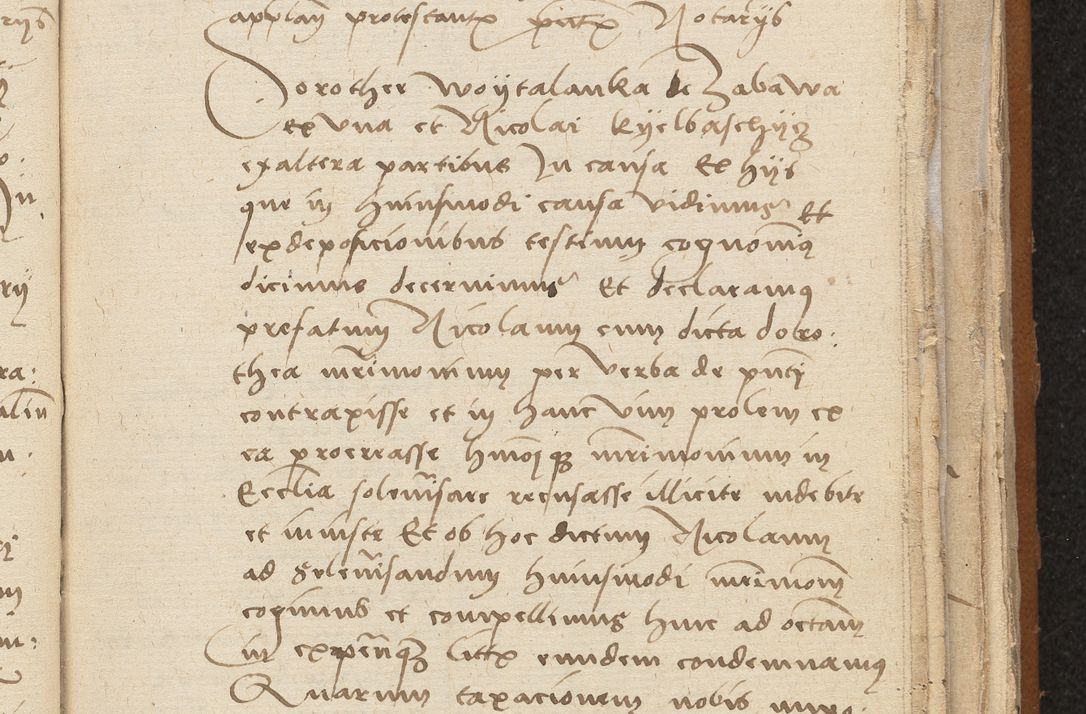 applan protestantx pntx Notarijs
Dorothee Woytalanka de Zabawa
ex una et Nicolai Kyelbaschijcz
ex altera partibus In causa Ex hijs
que in huiusmodi causa vidimus Et
ex deposicionibus testium cognovimus
dicimus decernimus Et declaramus
prefatum Nicolaum cum dicta doro:
thea mrimonium per verba de pnti
contraxisse et in hanc vim prolem ex
ea procreasse hmoi qz mrimonium in
Ecclia solenisare recusasse illicite indebite
et iniuste Et ob hoc dictum Nicolaum
ad solenisandum huiusmodi mrimom
cogimus et compellimus hinc ad octam
in expensqz litx eundem condemnamus
Quarum taxacionem nobis
rijs
In
ra: